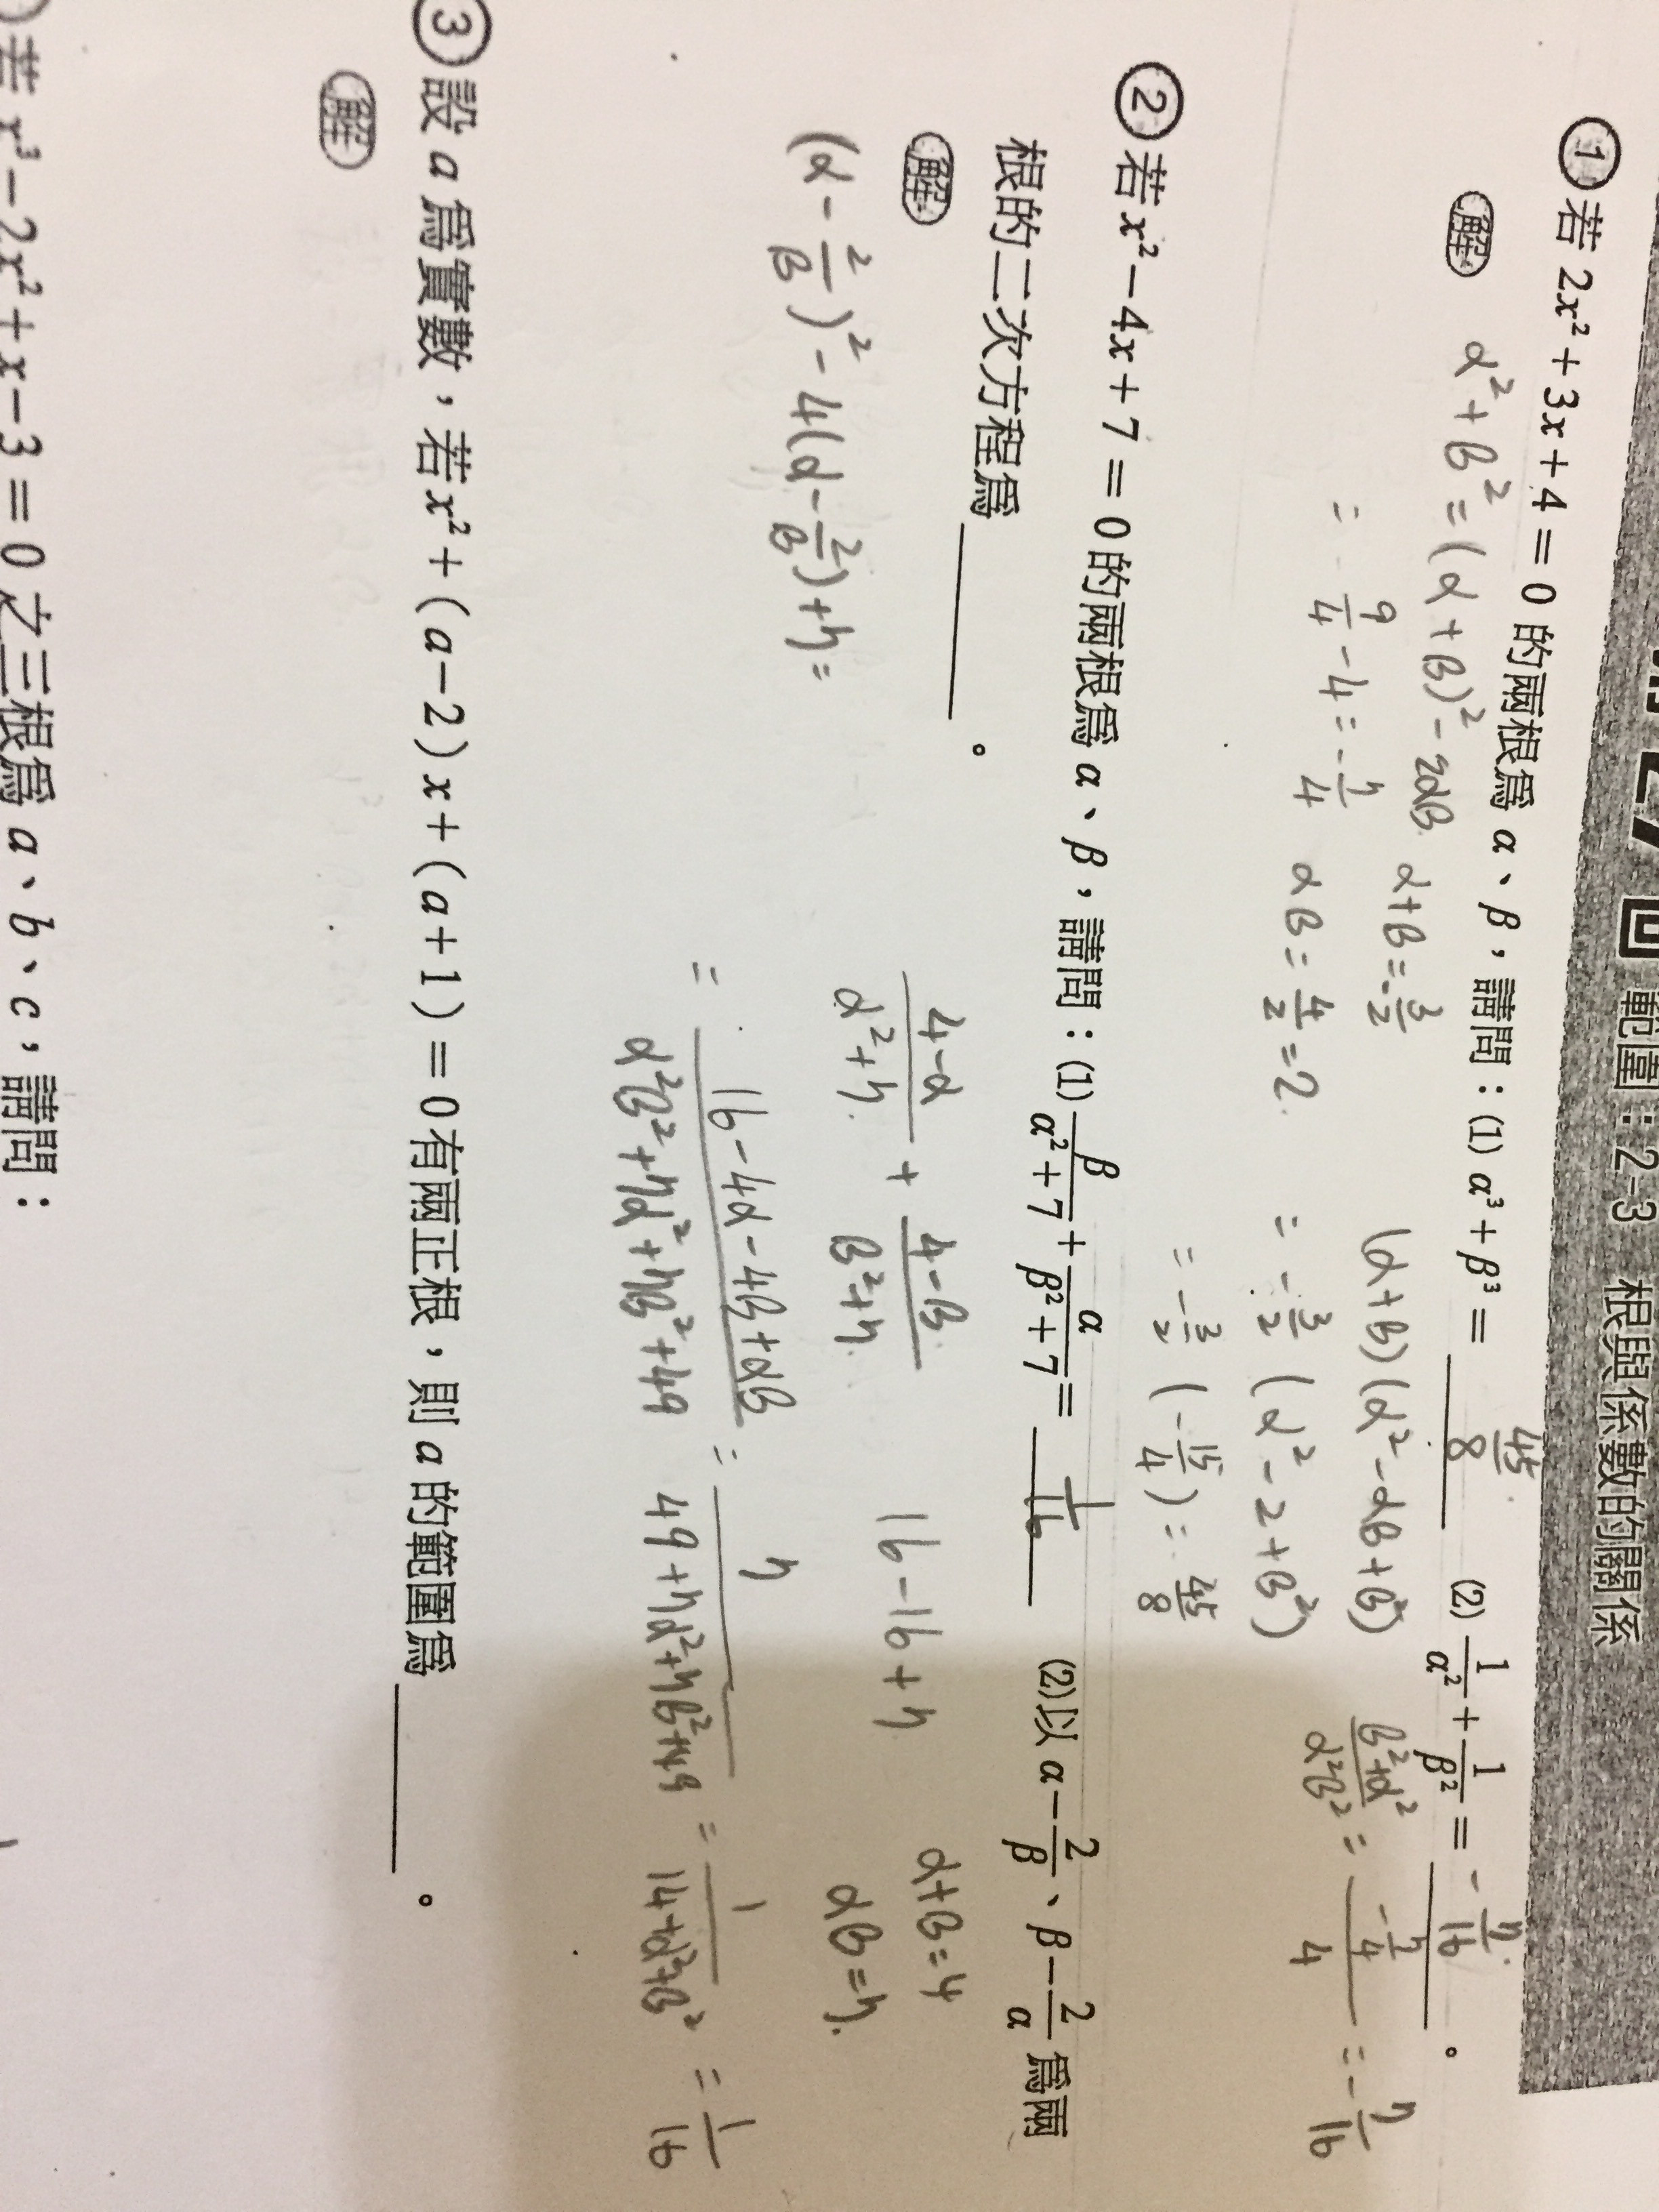 回 範圍：2-3 根與係數的關係
①若 2x²+3x+4=0 的兩根為 α、β，請問：(1) α³+β³= 45/8 (2) 1/α²+1/β²= -7/16 。
解 α²+β²=(α+β)²-2αβ α+β=-3/2 (α+β)(α²-αβ+β²) (β²+α²)/(α²β²) = (-7/4)/4 = -7/16
= 9/4-4=-7/4 αβ=4/2=2 =-3/2(α²-2+β²)
=-3/2(-15/4)=45/8
②若 x²-4x+7=0 的兩根為 α、β，請問：(1) β/(α²+7)+α/(β²+7)= 1/16 (2)以 α-2/β、β-2/α 為兩
根的二次方程為 。
解 (4-α)/(α²+7)+(4-β)/(β²+7) 16-16+7 α+β=4
αβ=7.
(α-2/β)²-4(α-2/β)+7=
= (16-4α-4β+αβ)/(α²β²+7α²+7β²+49) = 7/(49+7α²+7β²+49) = 1/(14+α²+β²) = 1/16
③設 a 為實數，若 x²+(a-2)x+(a+1)=0 有兩正根，則 a 的範圍為 。
解
若 x³-2x²+x-3=0 之三根為 a、b、c，請問：